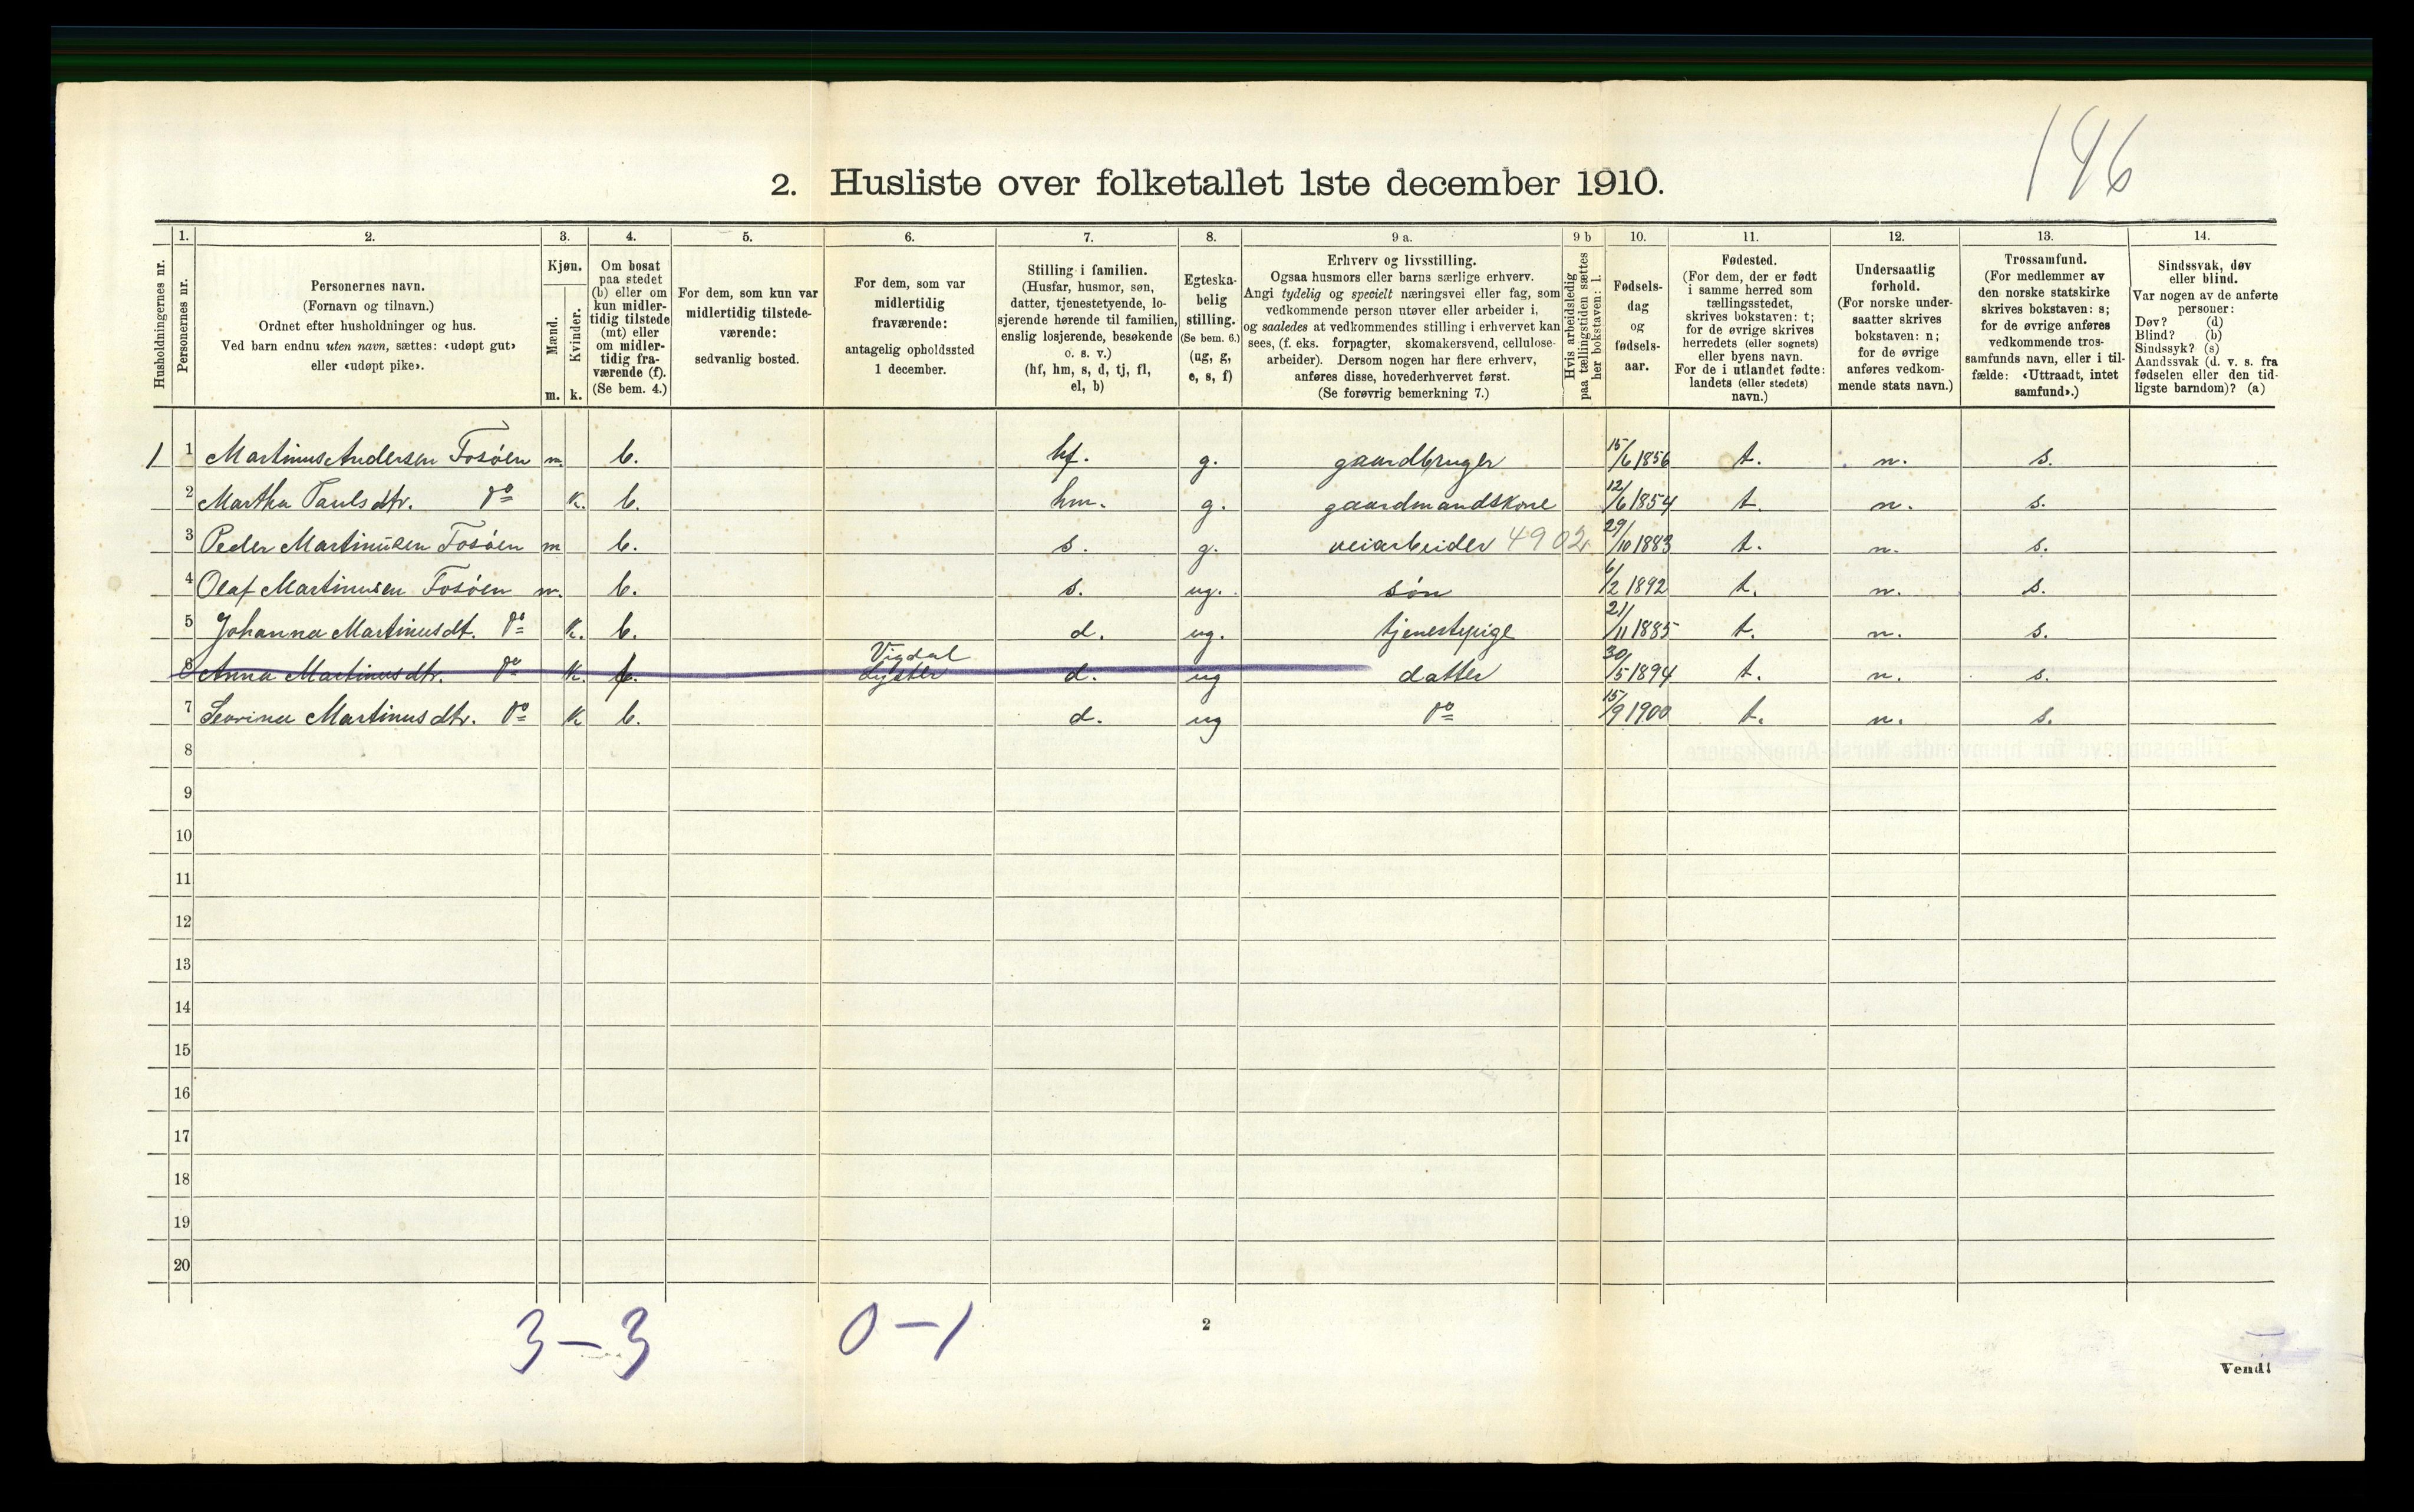 146
2. Husliste over folketallet 1ste december 1910.
1. 2. 3. 4. 5. 6. 7. 8. 9 a. 9 b 10. 11. 12. 13. 14.
Husholdningernes nr.
Personernes nr.
Personernes navn.
(Fornavn og tilnavn.)
Ordnet efter husholdninger og hus.
Ved barn endnu uten navn, sættes: «udøpt gut»
eller «udøpt pike».
Kjøn.
Mænd.
Kvinder.
m. k.
Om bosat
paa stedet
(b) eller om
kun midler-
tidig tilstede
(mt) eller
om midler-
tidig fra-
værende (f).
(Se bem. 4.)
For dem, som kun var
midlertidig tilstede-
værende:
sedvanlig bosted.
For dem, som var
midlertidig
fraværende:
antagelig opholdssted
1 december.
Stilling i familien.
(Husfar, husmor, søn,
datter, tjenestetyende, lo-
sjerende hørende til familien,
enslig losjerende, besøkende
o. s. v.)
(hf, hm, s, d, tj, fl,
el, b)
Egteska-
belig
stilling.
(Se bem. 6.)
(ug, g,
e, s, f)
Erhverv og livsstilling.
Ogsaa husmors eller barns særlige erhverv.
Angi tydelig og specielt næringsvei eller fag, som
vedkommende person utøver eller arbeider i,
og saaledes at vedkommendes stilling i erhvervet kan
sees, (f. eks. forpagter, skomakersvend, cellulose-
arbeider). Dersom nogen har flere erhverv,
anføres disse, hovederhvervet først.
(Se forøvrig bemerkning 7.)
Hvis arbeidsledig
paa tællingstiden sættes
her bokstaven: l.
Fødsels-
dag
og
fødsels-
aar.
Fødested.
(For dem, der er født
i samme herred som
tællingsstedet,
skrives bokstaven: t;
for de øvrige skrives
herredets (eller sognets)
eller byens navn.
For de i utlandet fødte:
landets (eller stedets)
navn.)
Undersaatlig
forhold.
(For norske under-
saatter skrives
bokstaven: n;
for de øvrige
anføres vedkom-
mende stats navn.)
Trossamfund.
(For medlemmer av
den norske statskirke
skrives bokstaven: s;
for de øvrige anføres
vedkommende tros-
samfunds navn, eller i til-
fælde: «Uttraadt, intet
samfund».)
Sindssvak, døv
eller blind.
Var nogen av de anførte
personer:
Døv? (d)
Blind? (b)
Sindssyk? (s)
Aandssvak (d. v. s. fra
fødselen eller den tid-
ligste barndom)? (a)
1 1 Martinus Andersen Fosöen m. b. hf. g. gaardbruger 15/6 1856 t. n. s.
2 Martha Paulsdtr. do k. b. hm. g. gaardmandskone 12/6 1854 t. n. s.
3 Peder Martinusen Fosöen m b. s. g. veiarbeider 4902 29/10 1883 t. n. s.
4 Olaf Martinusen Fosöen m. b. s. ug. søn 6/2 1892 t. n. s.
5 Johanna Martinusdt. do k. b. d. ug. tjenestepige 21/11 1885 t. n. s.
6 Anna Martinusdtr. do k. f. Vigdal d. ug datter 30/5 1894 t. n. s.
7 Martinusdtr. do k b. d. ug do 15/9 1900 t. n. s.
8
9
10
11
12
13
14
15
16
17
18
19
20
3-3 0-1
2
Vend!